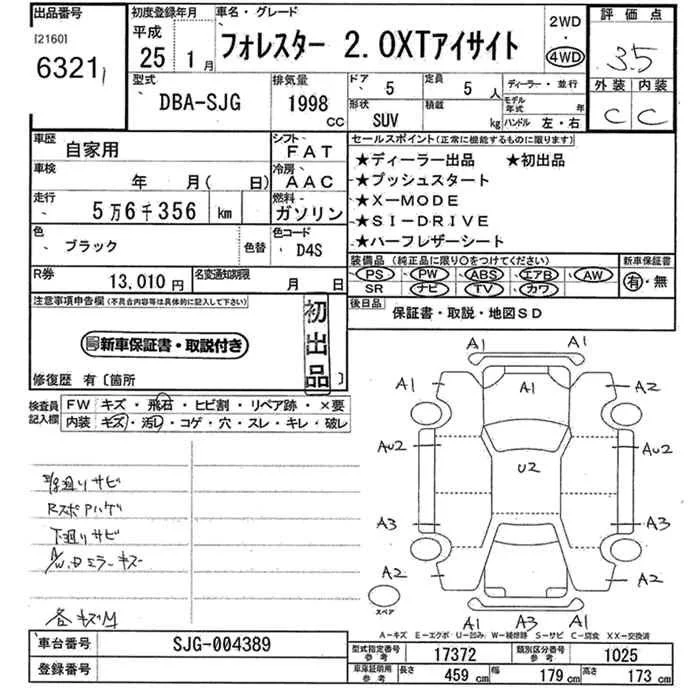 出品番号
[2160]
6321
初度登録年月
平成
25 1月
車名・グレード
フォレスター 2.0XTアイサイト
2WD
・
4WD
評価点
3.5
外装 内装
C C
型式
DBA-SJG
排気量
1998
cc
ドア
5
定員
5 人
ディーラー・並行
形状
SUV
積載
kg
モデル年式 年
ハンドル 左・右
車歴
自家用
シフト
FAT
車検
年 月( 日)
冷房
AAC
走行
5万6千356 km
燃料
ガソリン
色
ブラック
色替
色コード
D4S
R券
13,010円
名変通知期限
月 日
セールスポイント(正常に機能するものに限ります)
★ディーラー出品 ★初出品
★プッシュスタート
★X-MODE
★SI-DRIVE
★ハーフレザーシート
装備品(純正品に限り○をつけてください)
PS・PW・ABS・エアB・AW
SR ナビ・TV・カワ
新車保証書
有・無
後日品
保証書・取説・地図SD
注意事項申告欄(不具合内容等は具体的に記入して下さい)
新車保証書・取説付き
初出品
修復歴 有〔箇所 〕
検査員記入欄
FW キズ・飛石・ヒビ割・リペア跡・×要
内装 キズ・汚レ・コゲ・穴・スレ・キレ・破レ
下廻りサビ
A1 A1
A1 A1 A2
AU2 AU2
U2
A3 A3
A2 A2
スペア
A1 A3 A1
A-キズ E-エクボ U-凹み W-補修跡 S-サビ C-腐食 XX-交換済
車台番号
SJG-004389
登録番号
型式指定番号
参考
17372
類別区分番号
参考
1025
車庫証明用
参考
長さ
459 cm
幅
179 cm
高さ
173 cm